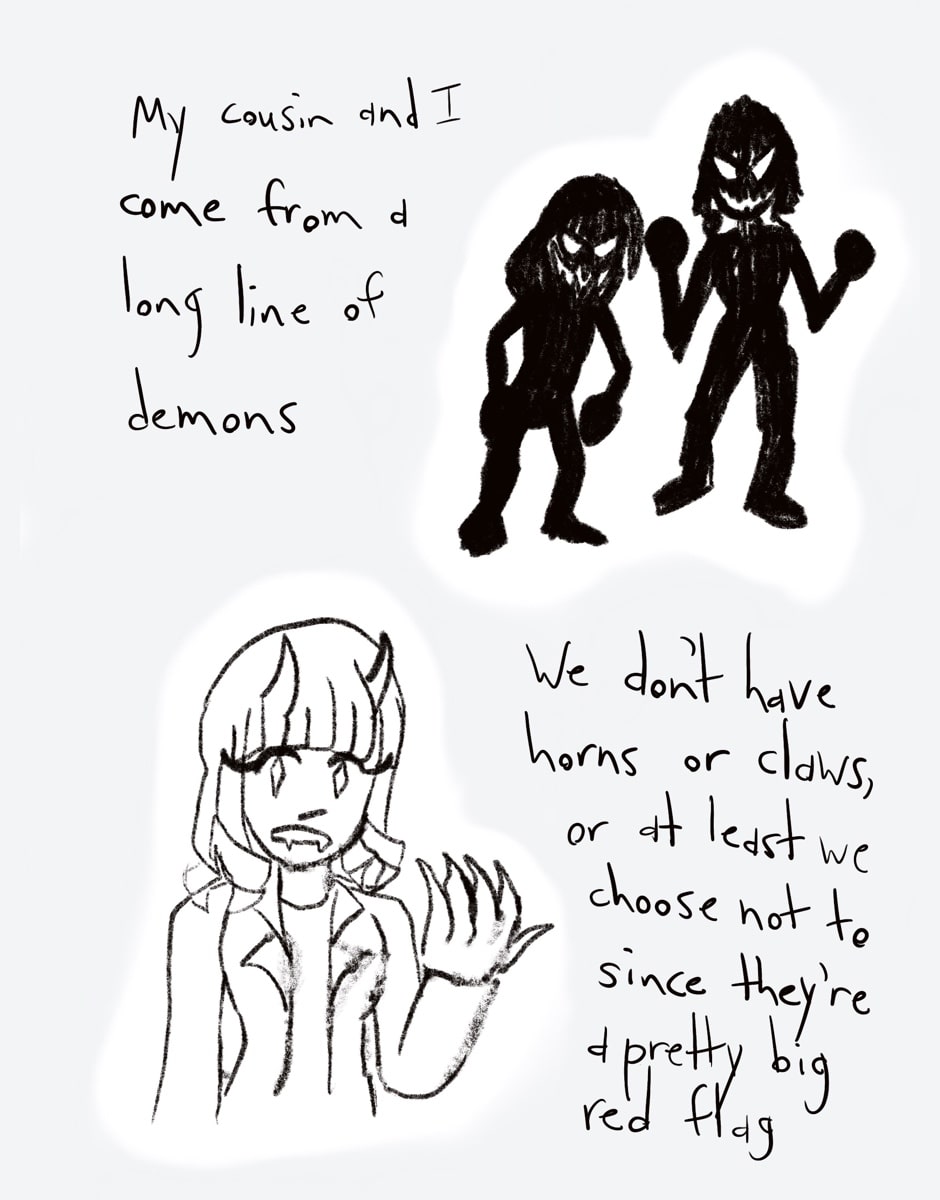 My cousin and I
come from a
long line of
demons
We don't have
horns or claws,
or at least we
choose not to
since they're
a pretty big
red flag